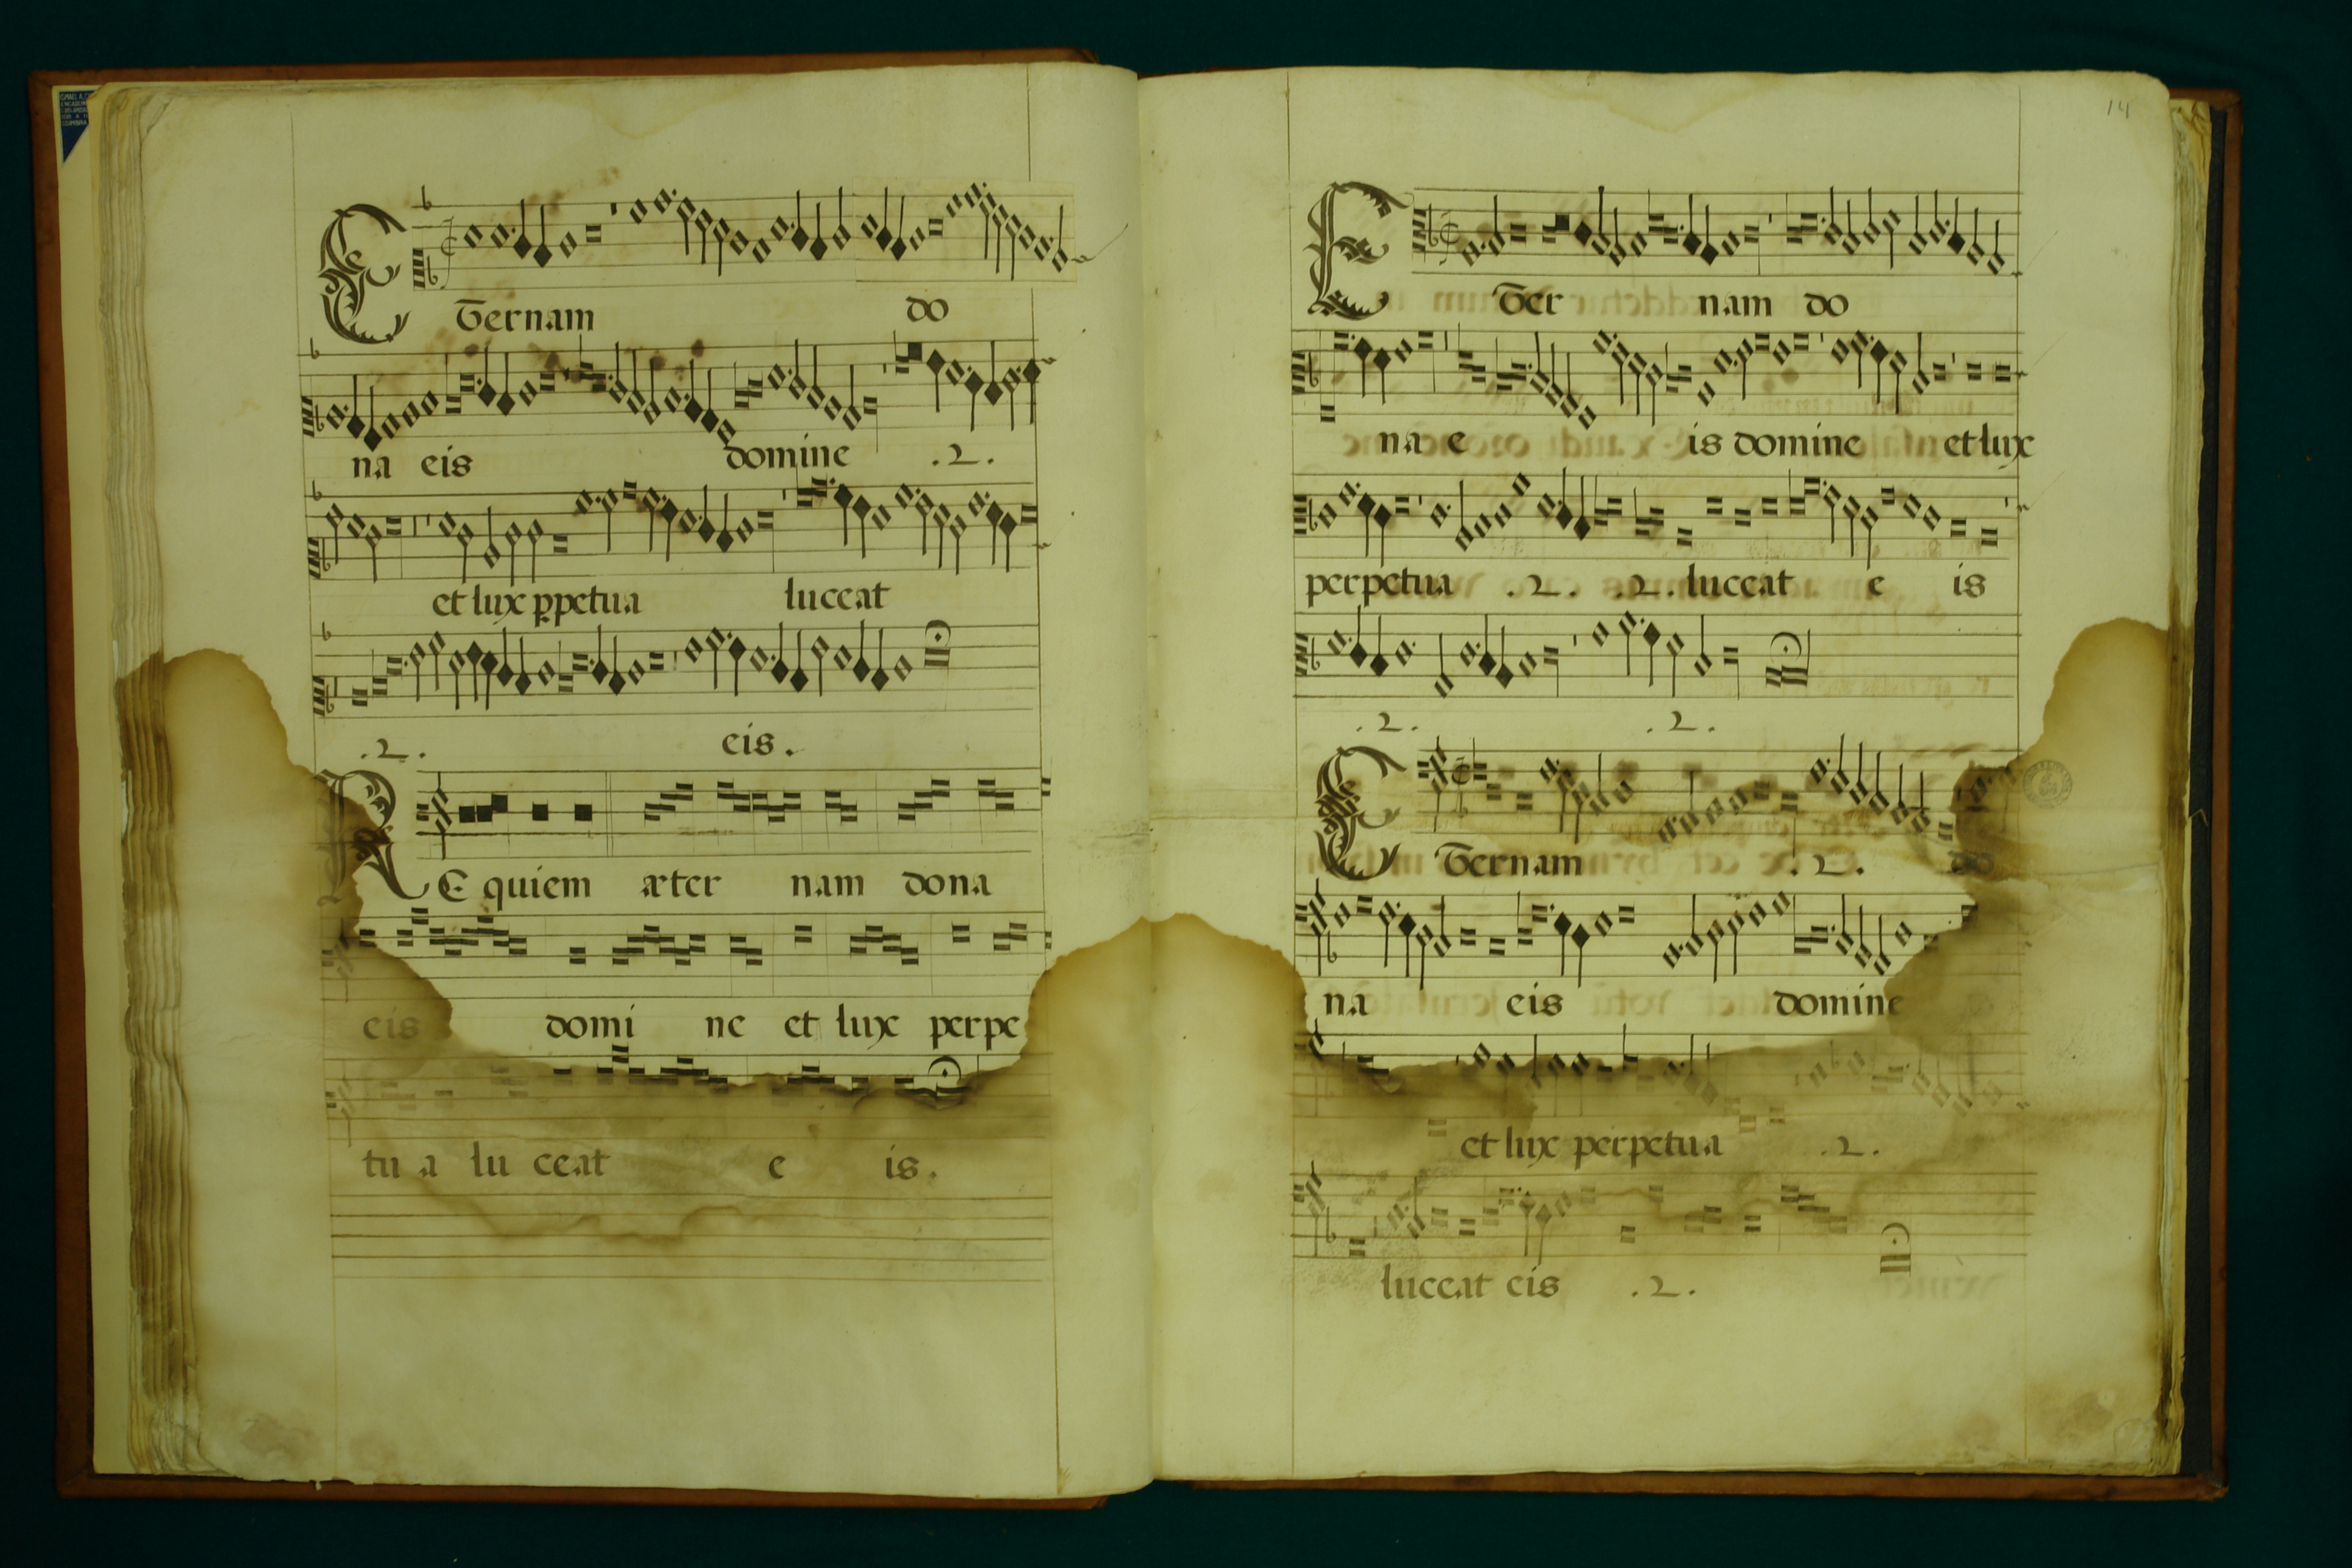 ETernam do
na eis domine .2.
et lux ppetua luceat
.2. eis.
RE quiem æter nam dona
eis domi ne et lux perpe
tu a lu ceat e is.
14
ETer nam do
na e is domine et lux
perpetua .2. .2. luceat e is
.2. .2.
ETernam .2. do
na eis domine
et lux perpetua .2.
luceat eis .2.